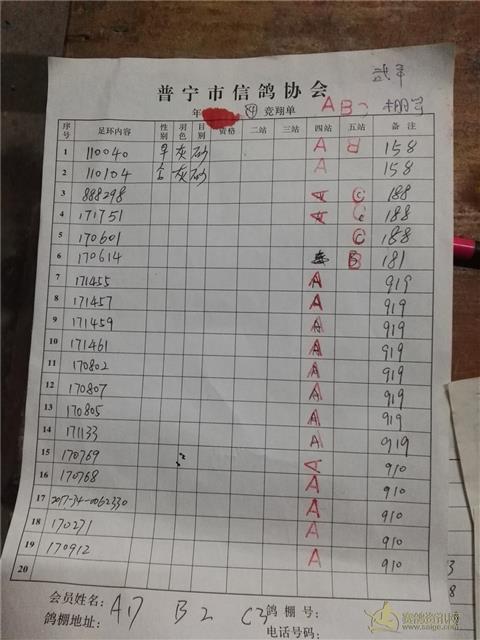 普宁市信鸽协会
年 竞翔单
A B C 棚号
序号 足环内容 性别 羽色 目别 资格 二站 三站 四站 五站 备注
1 110040 灰 砂 A B 158
2 110104 灰 砂 A 158
3 888298 A C 188
4 171751 A C 188
5 170601 C 188
6 170614 B 181
7 171455 A 919
8 171457 A 919
9 171459 A 919
10 171461 A 919
11 170802 A 919
12 170807 A 919
13 170805 A 919
14 171133 A 919
15 170769 A 910
16 170768 A 910
17 2017-34-0062330 A 910
18 170271 A 910
19 170912 A 910
20
会员姓名: A17 B2 C3 鸽棚号:
鸽棚地址: 电话号码:
赛鸽资讯网
www.saige.com